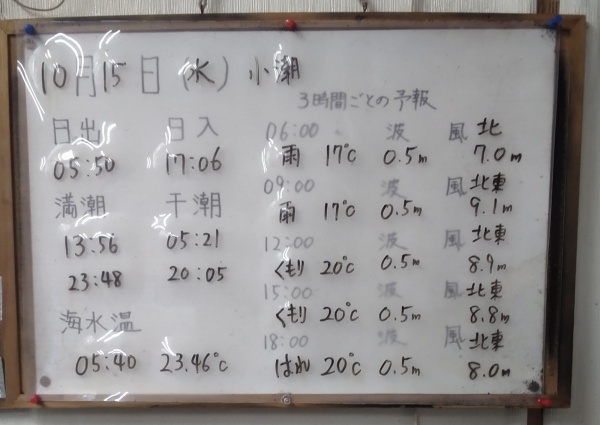 10月15日(水) 小潮
3時間ごとの予報
日出 日入
05:50 17:06
満潮 干潮
13:56 05:21
23:48 20:05
海水温
05:40 23.46℃
06:00 波 風 北
雨 17℃ 0.5m 7.0m
09:00 波 風 北東
雨 17℃ 0.5m 9.1m
12:00 波 風 北東
くもり 20℃ 0.5m 8.9m
15:00 波 風 北東
くもり 20℃ 0.5m 8.8m
18:00 波 風 北東
はれ 20℃ 0.5m 8.0m